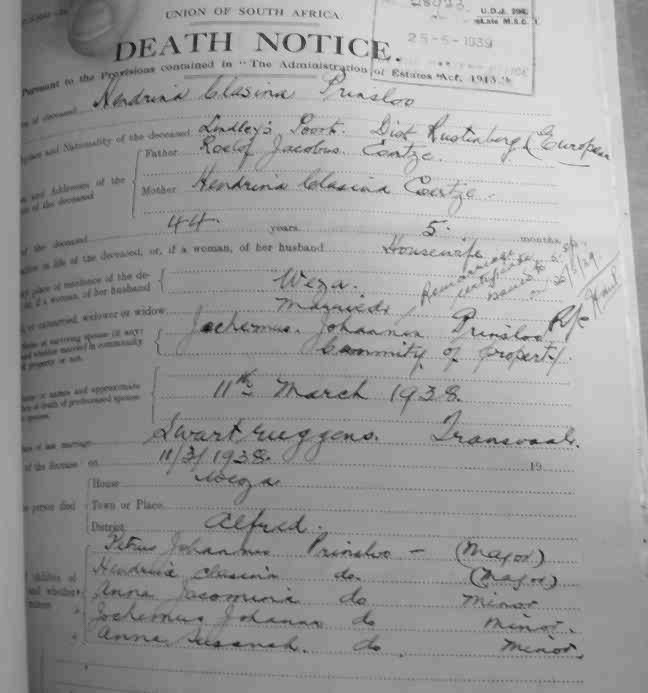 28023
U.D.J. 294E.
Late M.S.C. 1.
UNION OF SOUTH AFRICA.
25-5-1939
DEATH NOTICE.
Pursuant to the Provisions contained in "The Administration of Estates Act, 1913."
of deceased Hendrina Clasina Prinsloo
place and Nationality of the deceased Lindley's Poort. Dist Rustenberg (European
Father Roelof Jacobus Coetze.
es and Addresses of the
of the deceased
Mother Hendrina Clasina Coetze.
of the deceased 44. years 5. months
in life of the deceased, or, if a woman, of her husband Housewife
place of residence of the de-
if a woman, of her husband Weza.
or unmarried, widower or widow Married.
Remarriage
certificate
issued to
on 25/5/39.
of surviving spouse (if any)
whether married in community
of property or not. Jochemus. Johannes Prinsloo
Commity of property.
or names and approximate
of death of predeceased spouse
or spouses
11th March 1938.
of last marriage Swartruggens. Transvaal.
of the decease on 11/3/1938. 19
House Weza
person died Town or Place
District Alfred.
children of
and whether
minors
Petrus Johannes Prinsloo - (Major)
Hendrina Clasina do. (Major)
Anna Jacomina do Minor
Jochemus Johannes do Minor.
Anna Susanah. do. Minor.